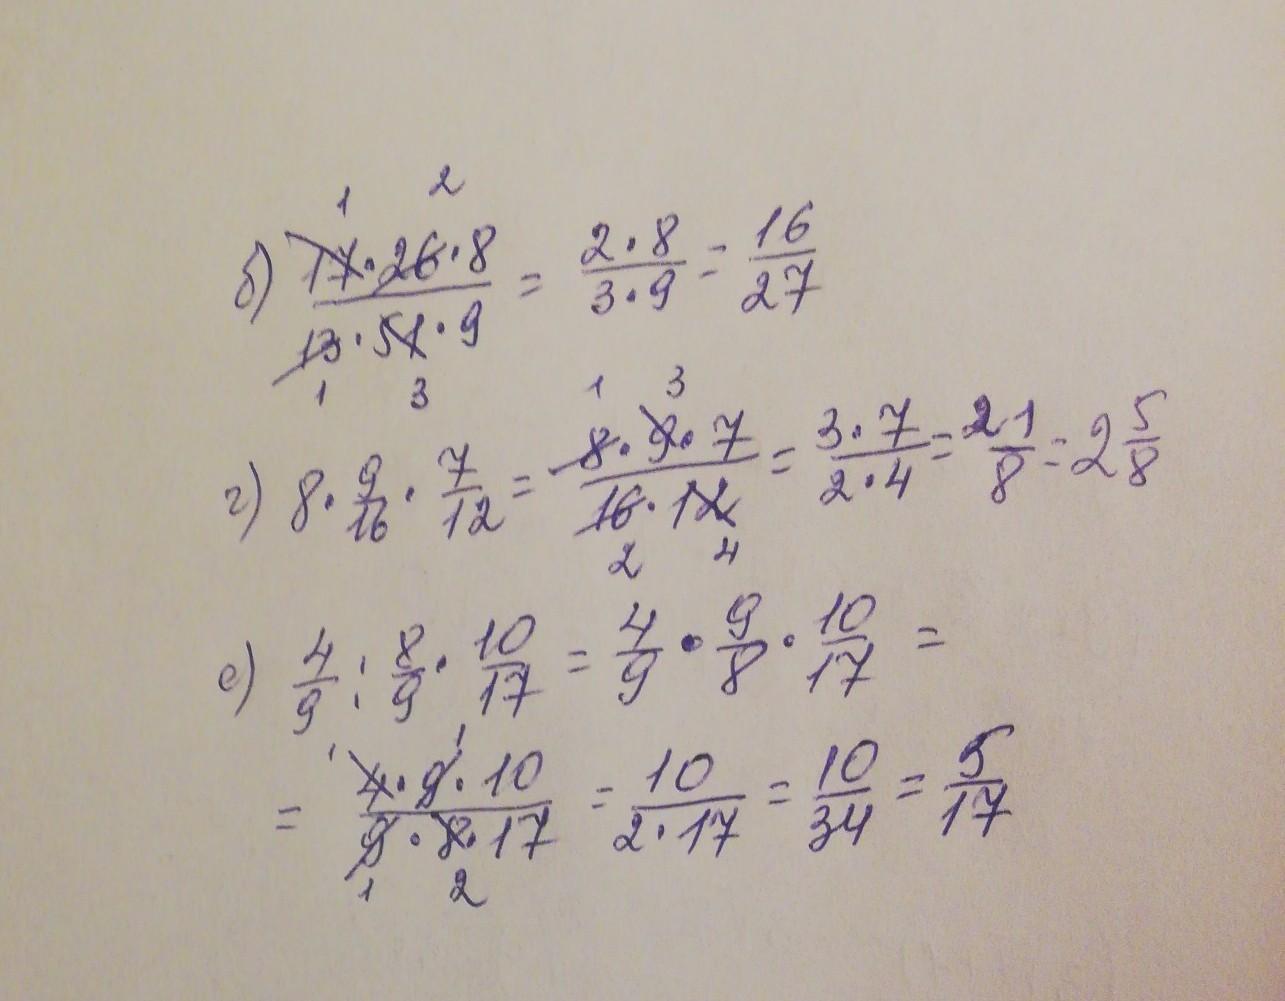 1 2
б) 17·26·8 / 13·51·9 = 2·8 / 3·9 = 16/27
1 3
1 3
г) 8 · 9/16 · 7/12 = 8·9·7 / 16·12 = 3·7 / 2·4 = 21/8 = 2 5/8
2 4
е) 4/9 : 8/9 · 10/17 = 4/9 · 9/8 · 10/17 =
1 1
= 4·9·10 / 9·8·17 = 10 / 2·17 = 10/34 = 5/17
1 2